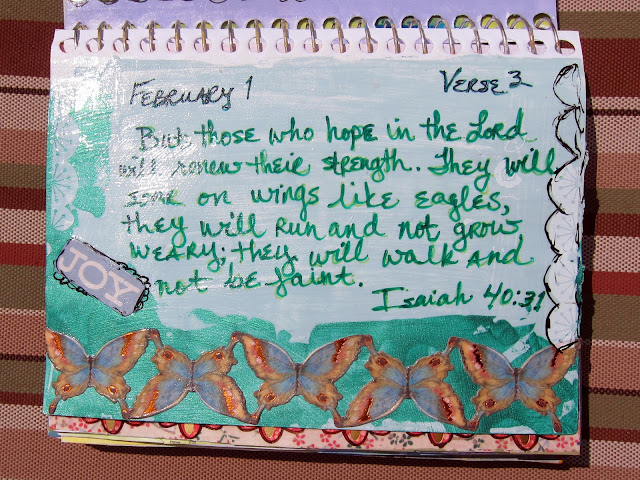 February 1 Verse 3
But, those who hope in the Lord
will renew their strength. They will
soar on wings like eagles,
they will run and not grow
weary; they will walk and
not be faint.
Isaiah 40:31
JOY